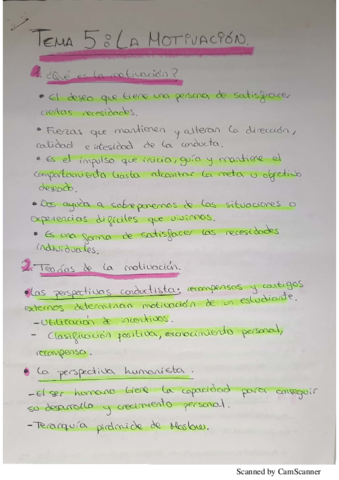 TEMA 5: LA MOTIVACIÓN.
1. ¿Qué es la motivación?
• El deseo que tiene una persona de satisfacer
ciertas necesidades.
• Fuerzas que mantienen y alteran la dirección,
calidad e intesidad de la conducta.
• Es el impulso que inicia, guía y mantiene el
comportamiento hasta alcanzar la meta u objetivo
deseado.
• Nos ayuda a sobreponernos de las situaciones o
experiencias difíciles que vivimos.
• Es una forma de satisfacer las necesidades
individuales.
2. Teorías de la motivación.
• Las perspectivas conductistas: recompensas y castigos
externos determinan motivación de un estudiante.
- Utilización de incentivos.
- Clasificación positiva, reconocimiento personal,
recompensa.
• La perspectiva humanista.
- El ser humano tiene la capacidad para conseguir
su desarrollo y crecimiento personal.
- Jerarquía pirámide de Maslow.
Scanned by CamScanner